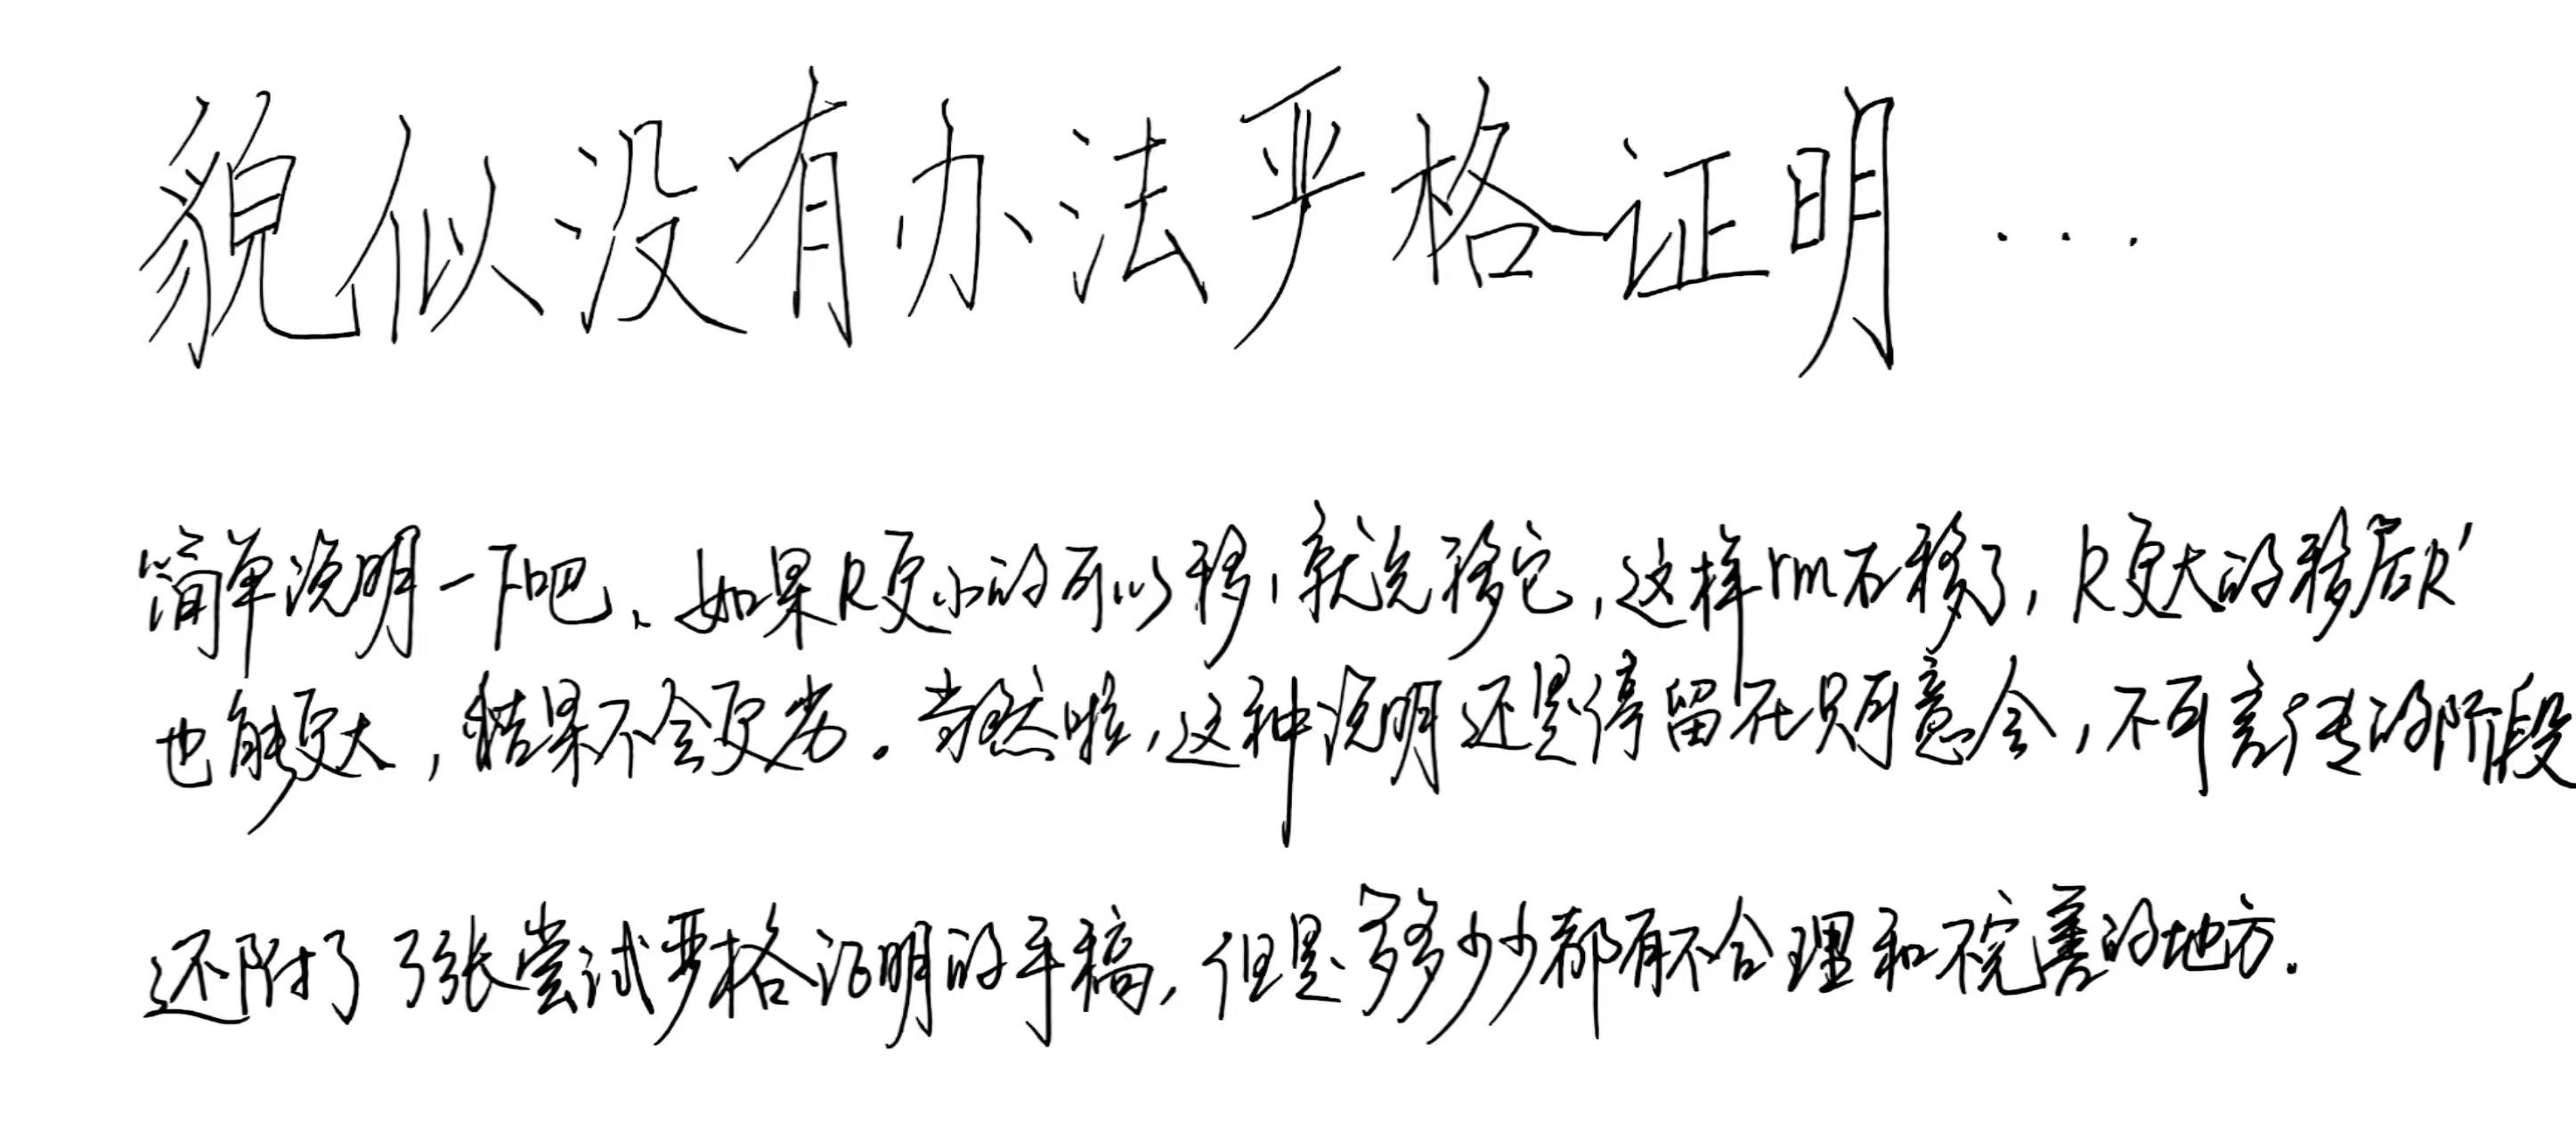 貌似没有办法严格证明...
简单说明一下吧、如果R更小的可以移,就先移它,这样rm不移了,R更大的移后R'
也能更大,结果不会更劣。当然啦,这种说明还是停留在只可意会,不可言传的阶段
还附了张尝试严格证明的手稿,但是多多少少都有不合理和不完善的地方.